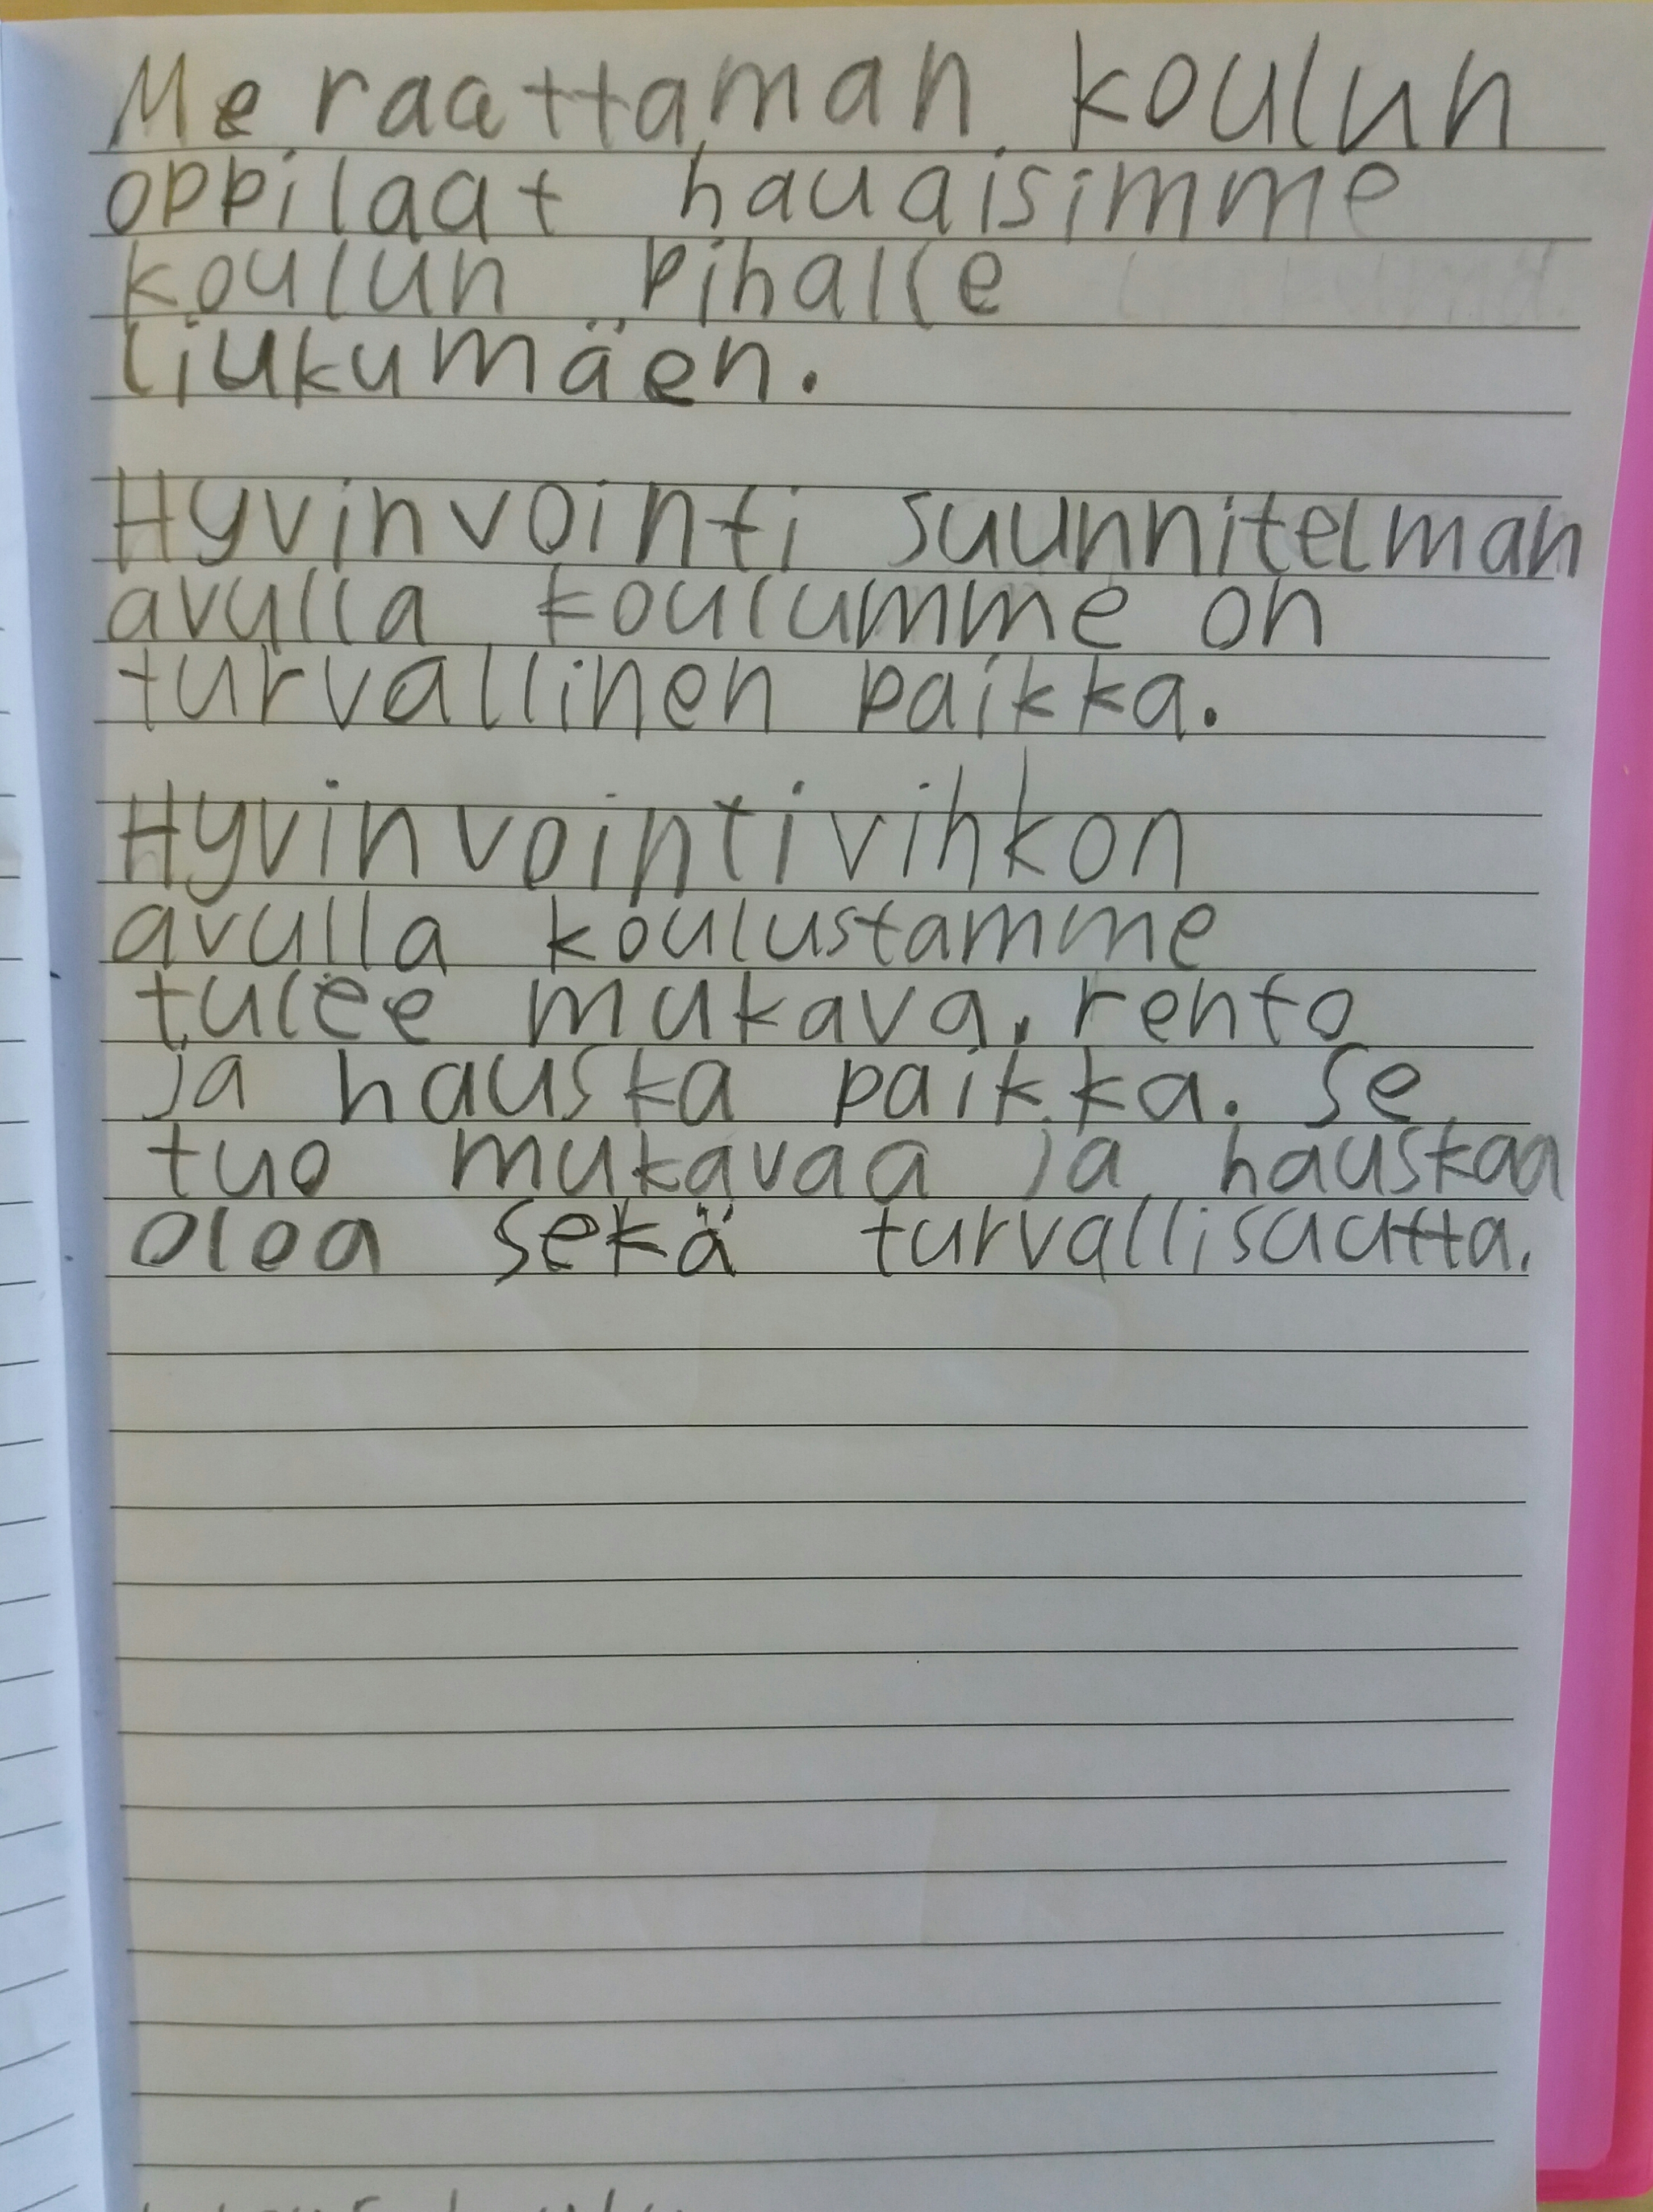 Me raattaman koulun
oppilaat hauaisimme
koulun pihalle
liukumäen.
Hyvinvointi suunnitelman
avulla koulumme on
turvallinen paikka.
Hyvinvointivihkon
avulla koulustamme
tulee mukava, rento
ja hauska paikka. Se
tuo mukavaa ja hauskaa
oloa sekä turvallisuutta.